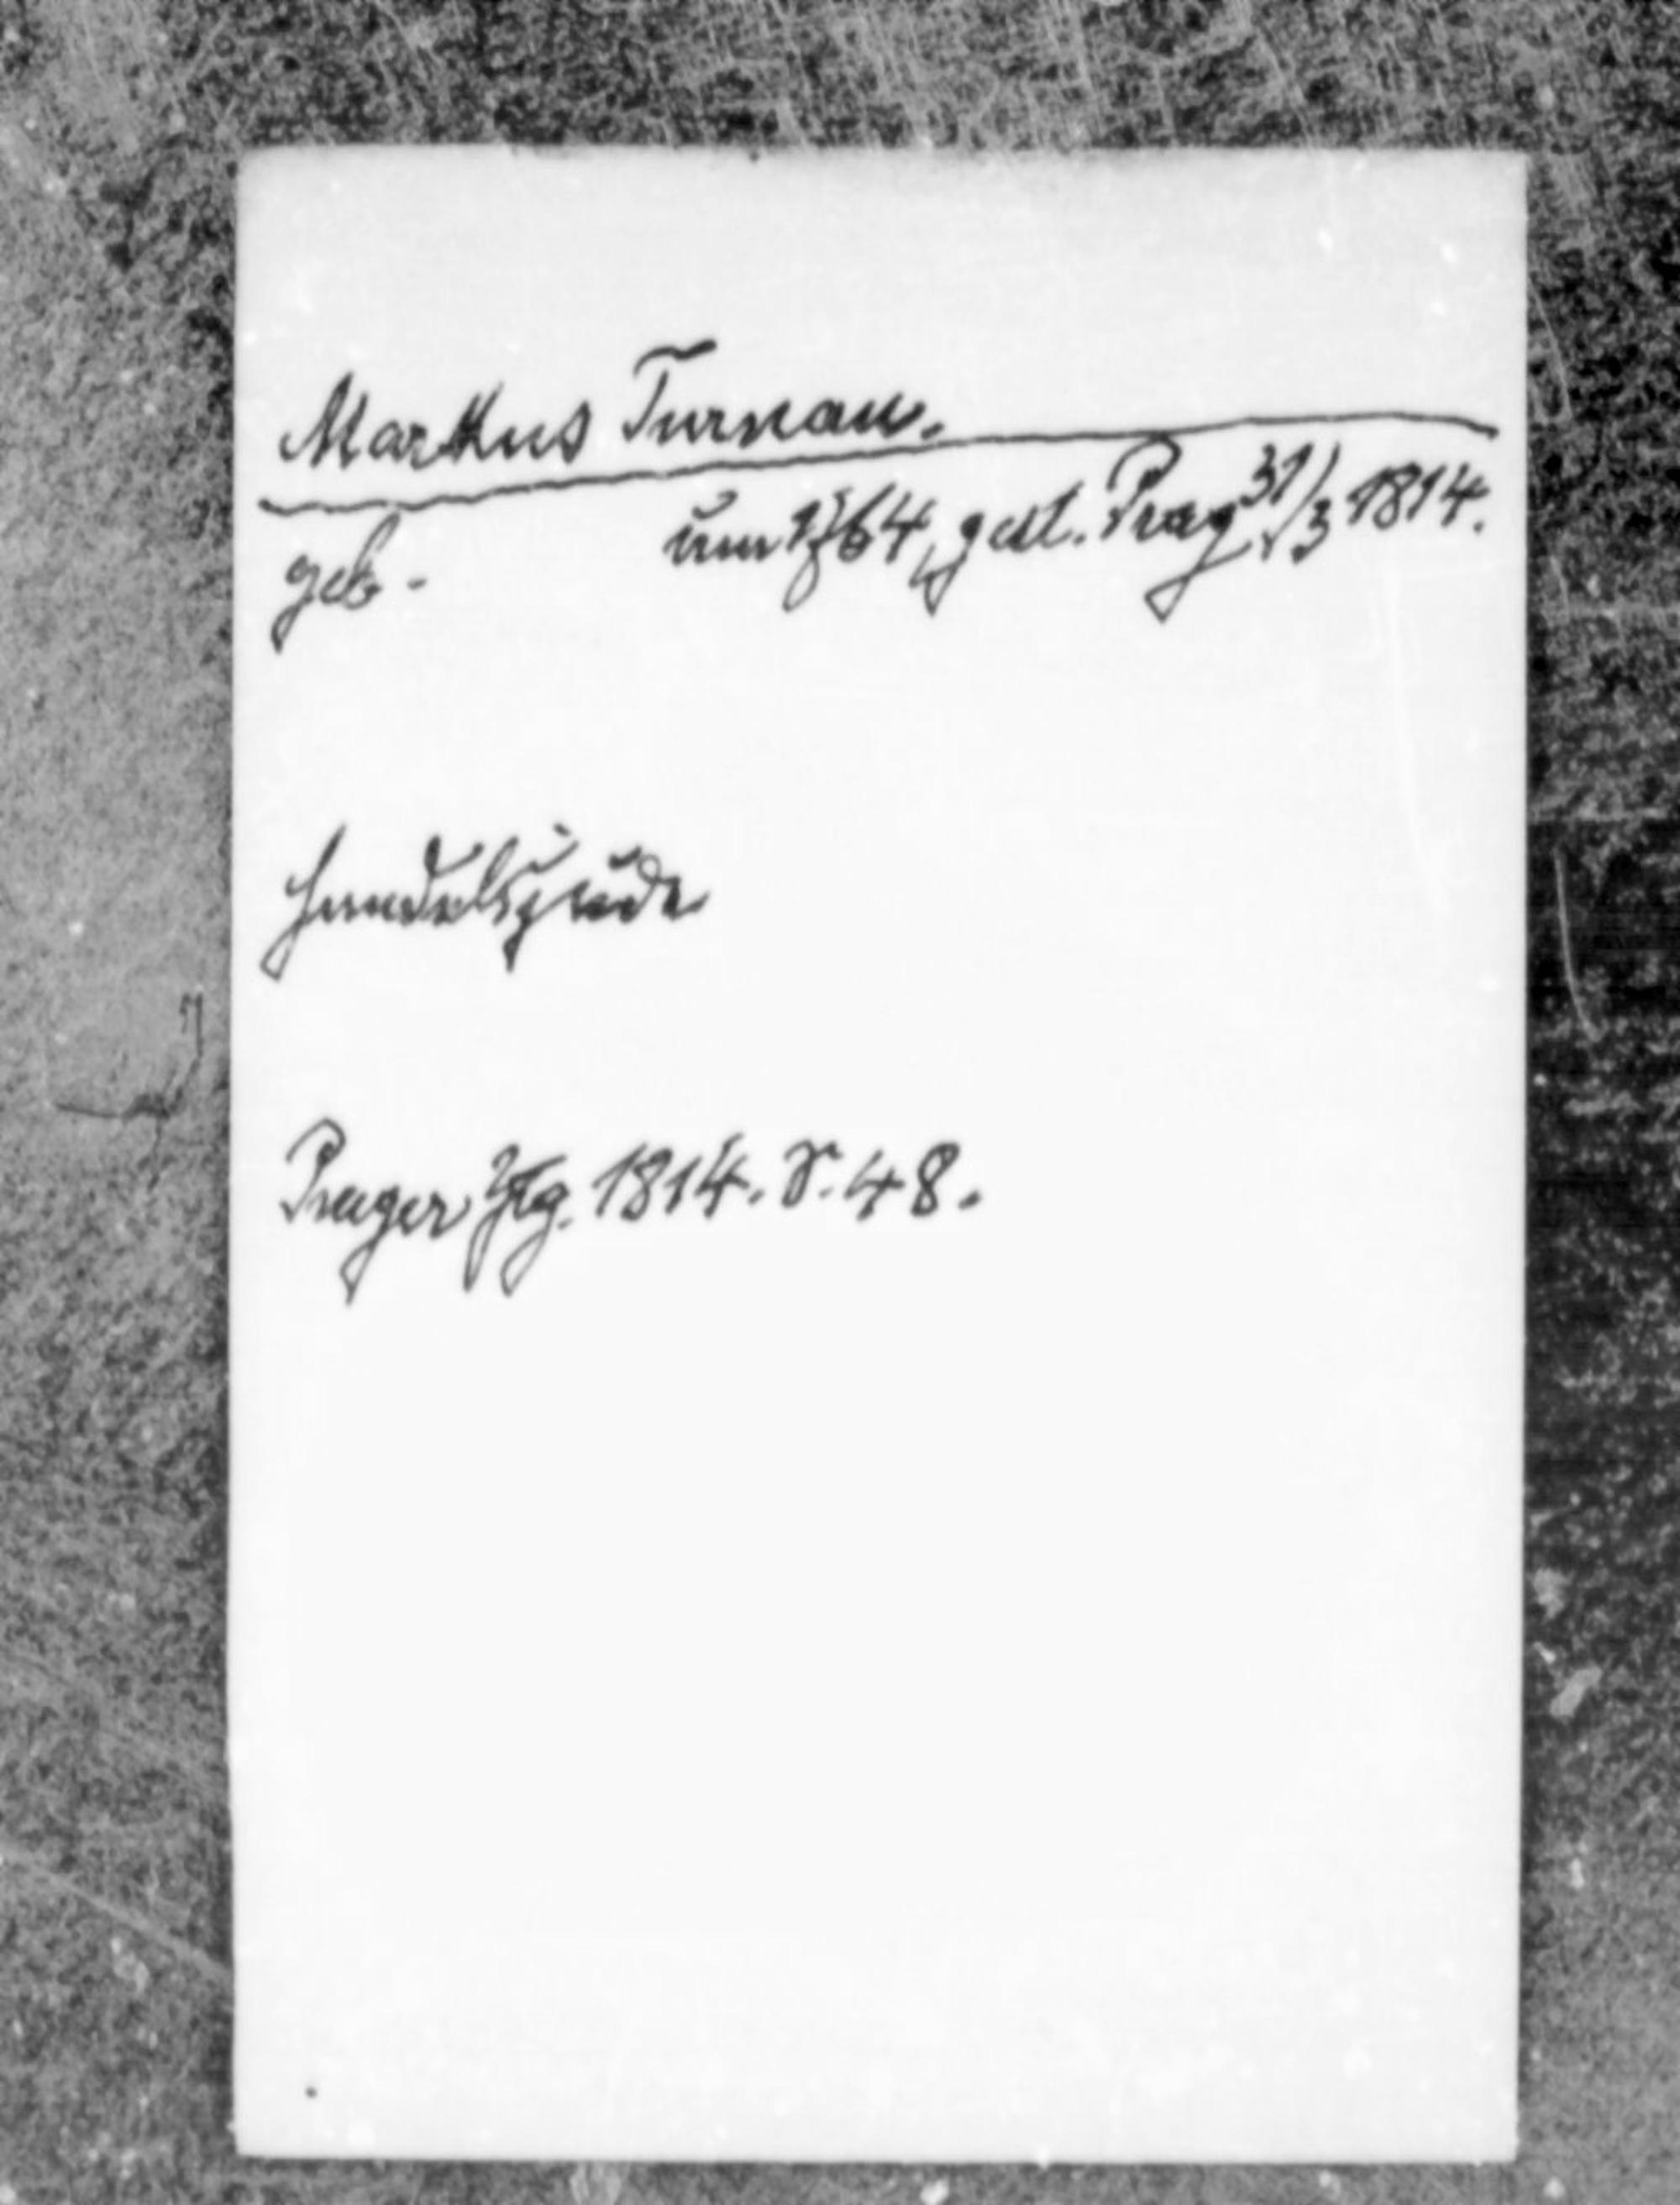 Markus Turnau.
geb. um 1764, gest. Prag 31/3 1814.
Handelsjude
Prager Ztg. 1814. S. 48.